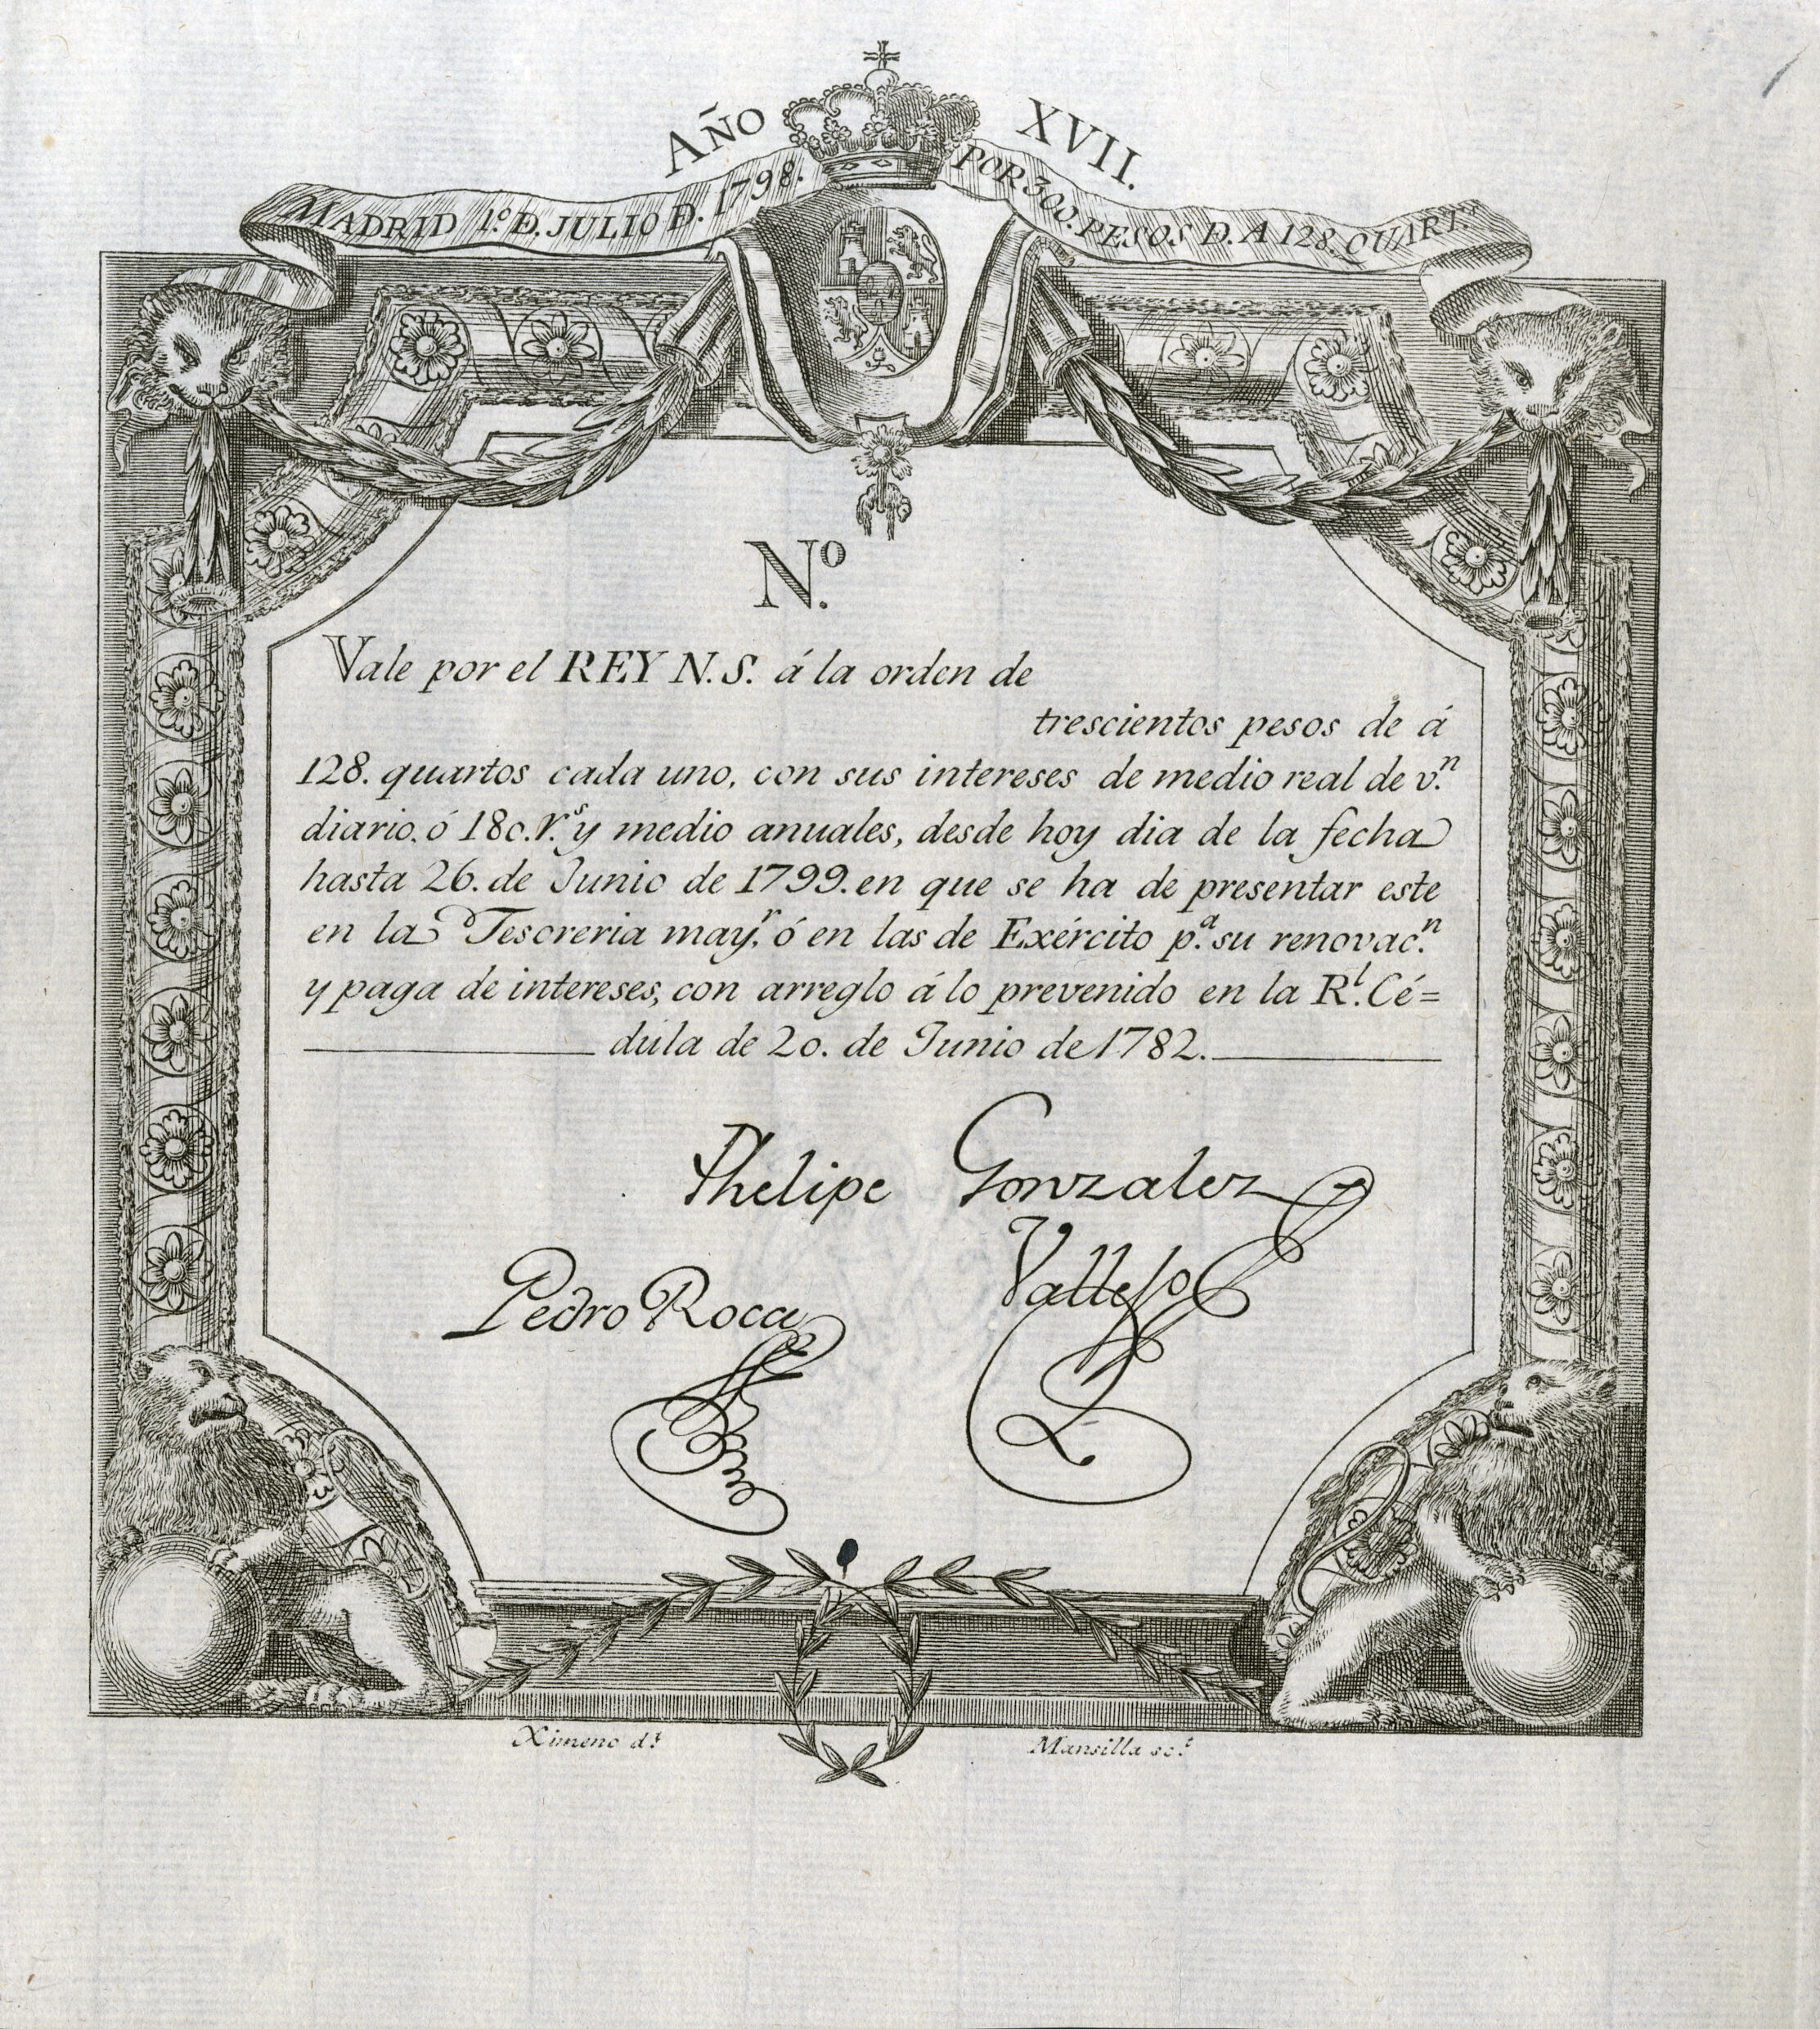 AÑO XVII.
MADRID 1.º Đ. JULIO Đ. 1798. POR 300. PESOS Đ. A 128 QUART.ˢ
N.º
Vale por el REY N.S. á la orden de
trescientos pesos de á
128. quartos cada uno, con sus intereses de medio real de v.ⁿ
diario, ó 180.r.ˢ y medio anuales, desde hoy dia de la fecha
hasta 26. de Junio de 1799. en que se ha de presentar este
en la Tesoreria may.ʳ, ó en las de Exército p.ᵃ su renovac.ⁿ
y paga de intereses, con arreglo á lo prevenido en la R.ˡ Cé=
dula de 20. de Junio de 1782.
Phelipe Gonzalez
Vallejo
Pedro Roca
Ximeno d.ᵗ Mansilla sc.ᵗ